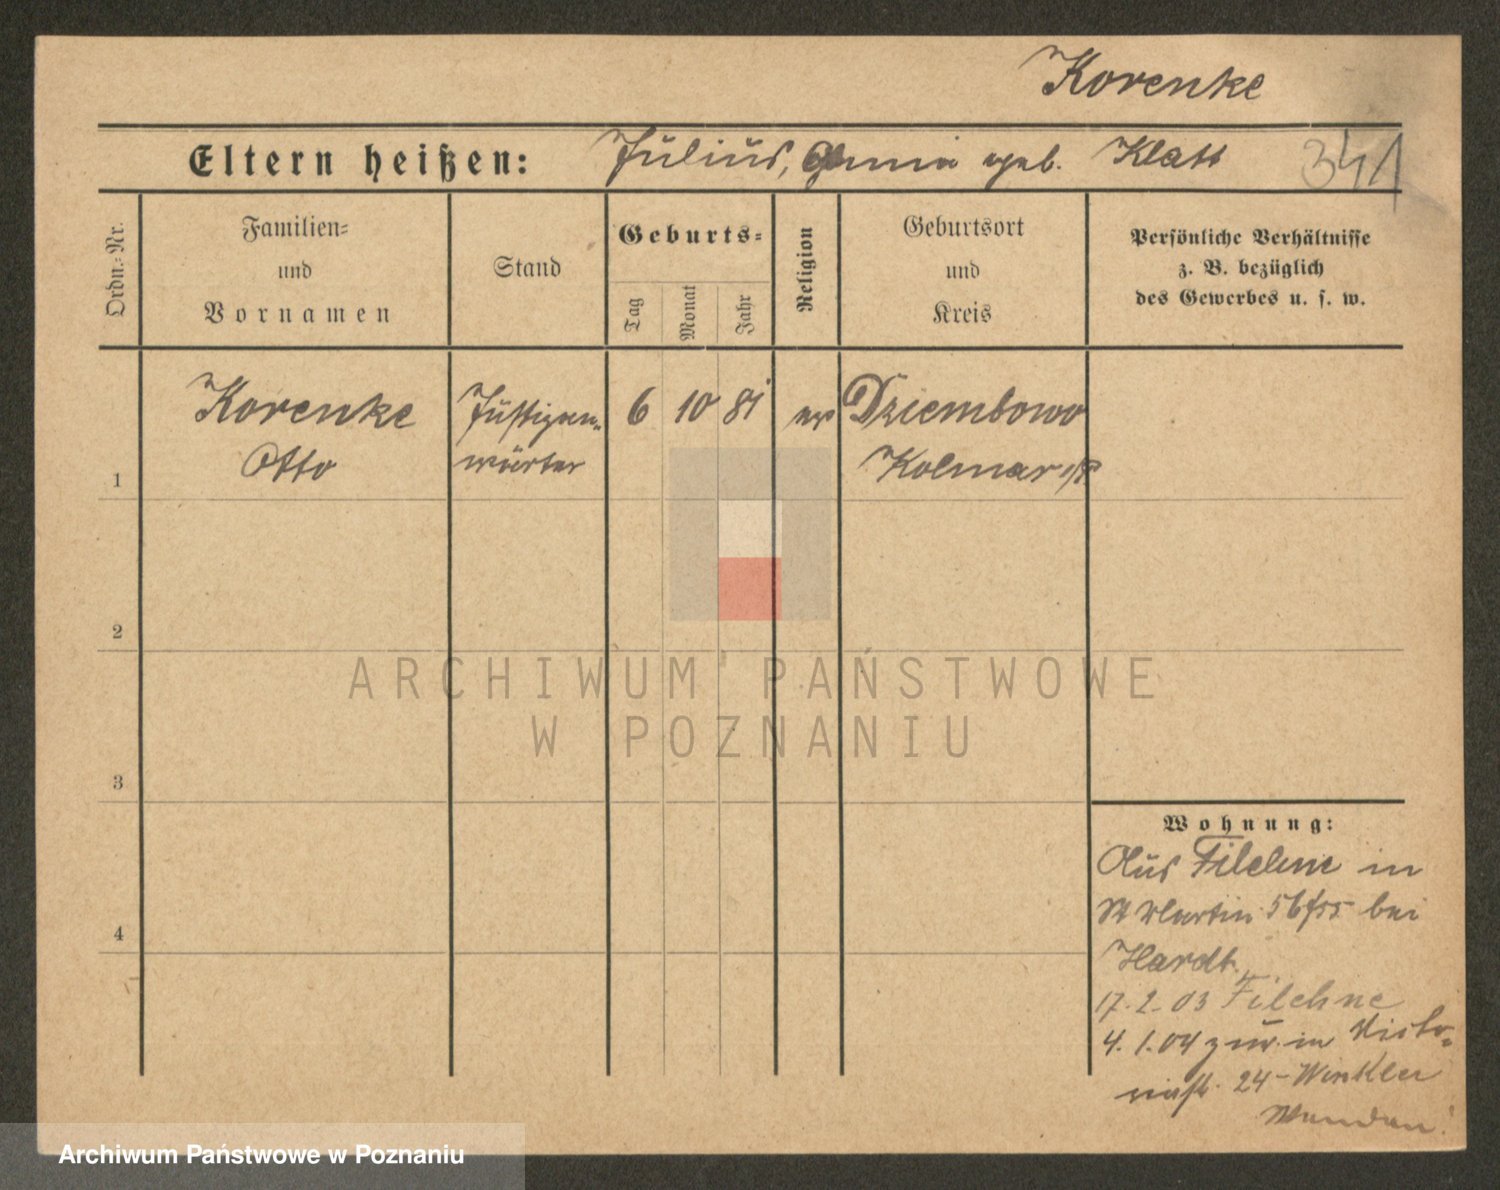 Korenke
Eltern heißen: Julius, Anna geb. Klatt
341
Ordn.-Nr.
Familien-
und
Vornamen
Stand
Geburts-
Tag
Monat
Jahr
Religion
Geburtsort
und
Kreis
Persönliche Verhältnisse
z. B. bezüglich
des Gewerbes u. s. w.
Korenke Justizan- 6 10 81 ev Dziembowo
Otto wärter Kolmar i/P
1
2
3
4
ARCHIWUM PAŃSTWOWE
W POZNANIU
Wohnung:
Aus Filehne in
St Martin 56 bei
Hardt
17. 2. 03 Filehne
4. 1. 04 zur. in Victo-
riastr. 24 - Winkler
Archiwum Państwowe w Poznaniu